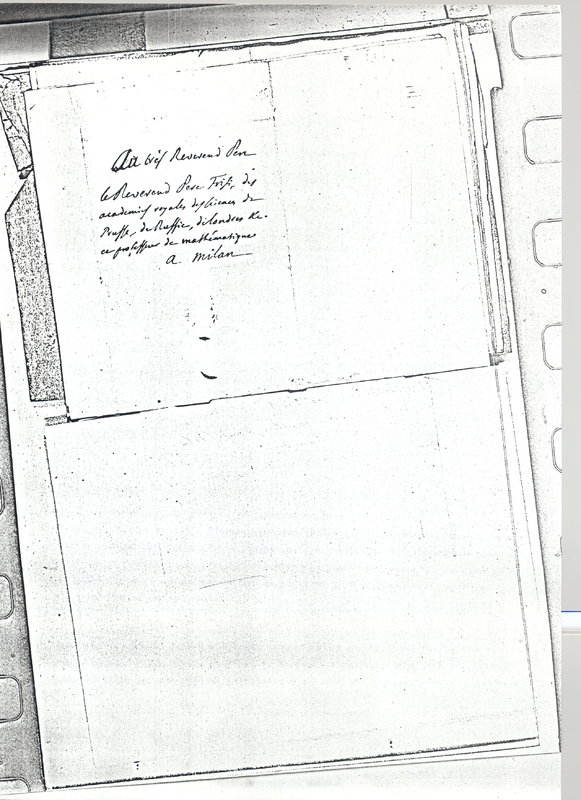 Au très Reverend Pere
le Reverend Pere Frisi, des
academies royales des sciences de
Prusse, de Russie, de londres &c.
et professeur de mathématique
a milan